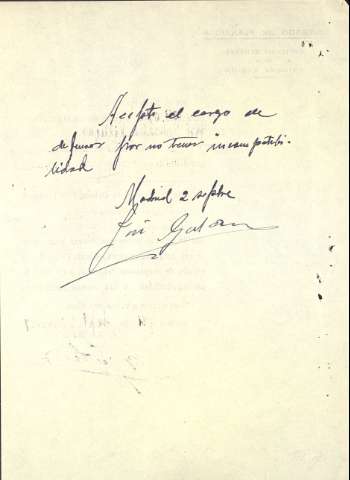 Acepto el cargo de
defensor por no tener incompatibi-
lidad
Madrid 2 sepbre
José Galán